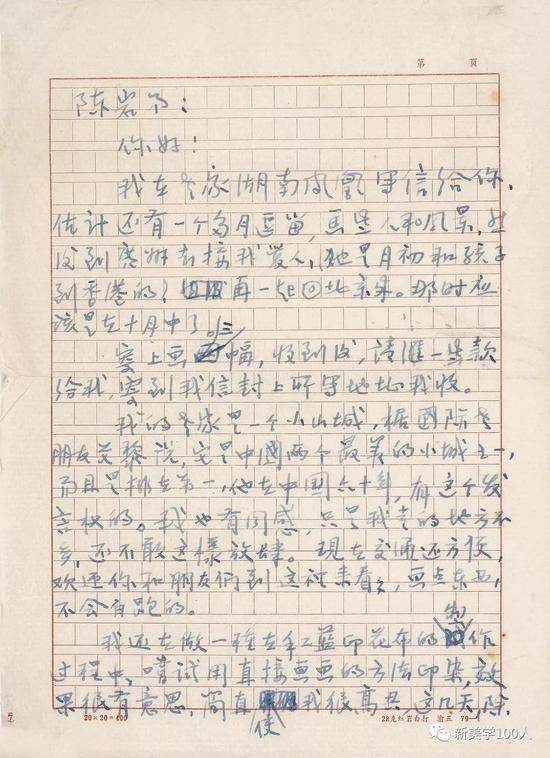 第 页
陈岩同:
你好!
我在老家湖南凤凰写信给你,
估计还有一个多月逗留,画些人和风景,然
后到广州去接我爱人(她是月初和孩子
到香港的)再一起回北京来。那时应
该是在十月中了。
寄上画三幅,收到后,请汇一些款
给我,寄到我信封上所写地址我收。
我的老家是一个小山城,据國际老
朋友艾黎说,它是中國两个最美的小城之一,
而且是排在第一,他在中国六十年,有这个发
言权的。我也有同感,只是我走的地方不
多,还不敢这樣放肆。现在交通还方便,
欢迎你和朋友们到这里来看看,画点东西,
不会白跑的。
我还在做一种在手工蓝印花布的制作
过程中,嚐试用直接画画的方法印染,效
果很有意思,简直使我很高兴,这几天,除
20×20=400
28克红岩白打 渝五 79-1
新美学100人